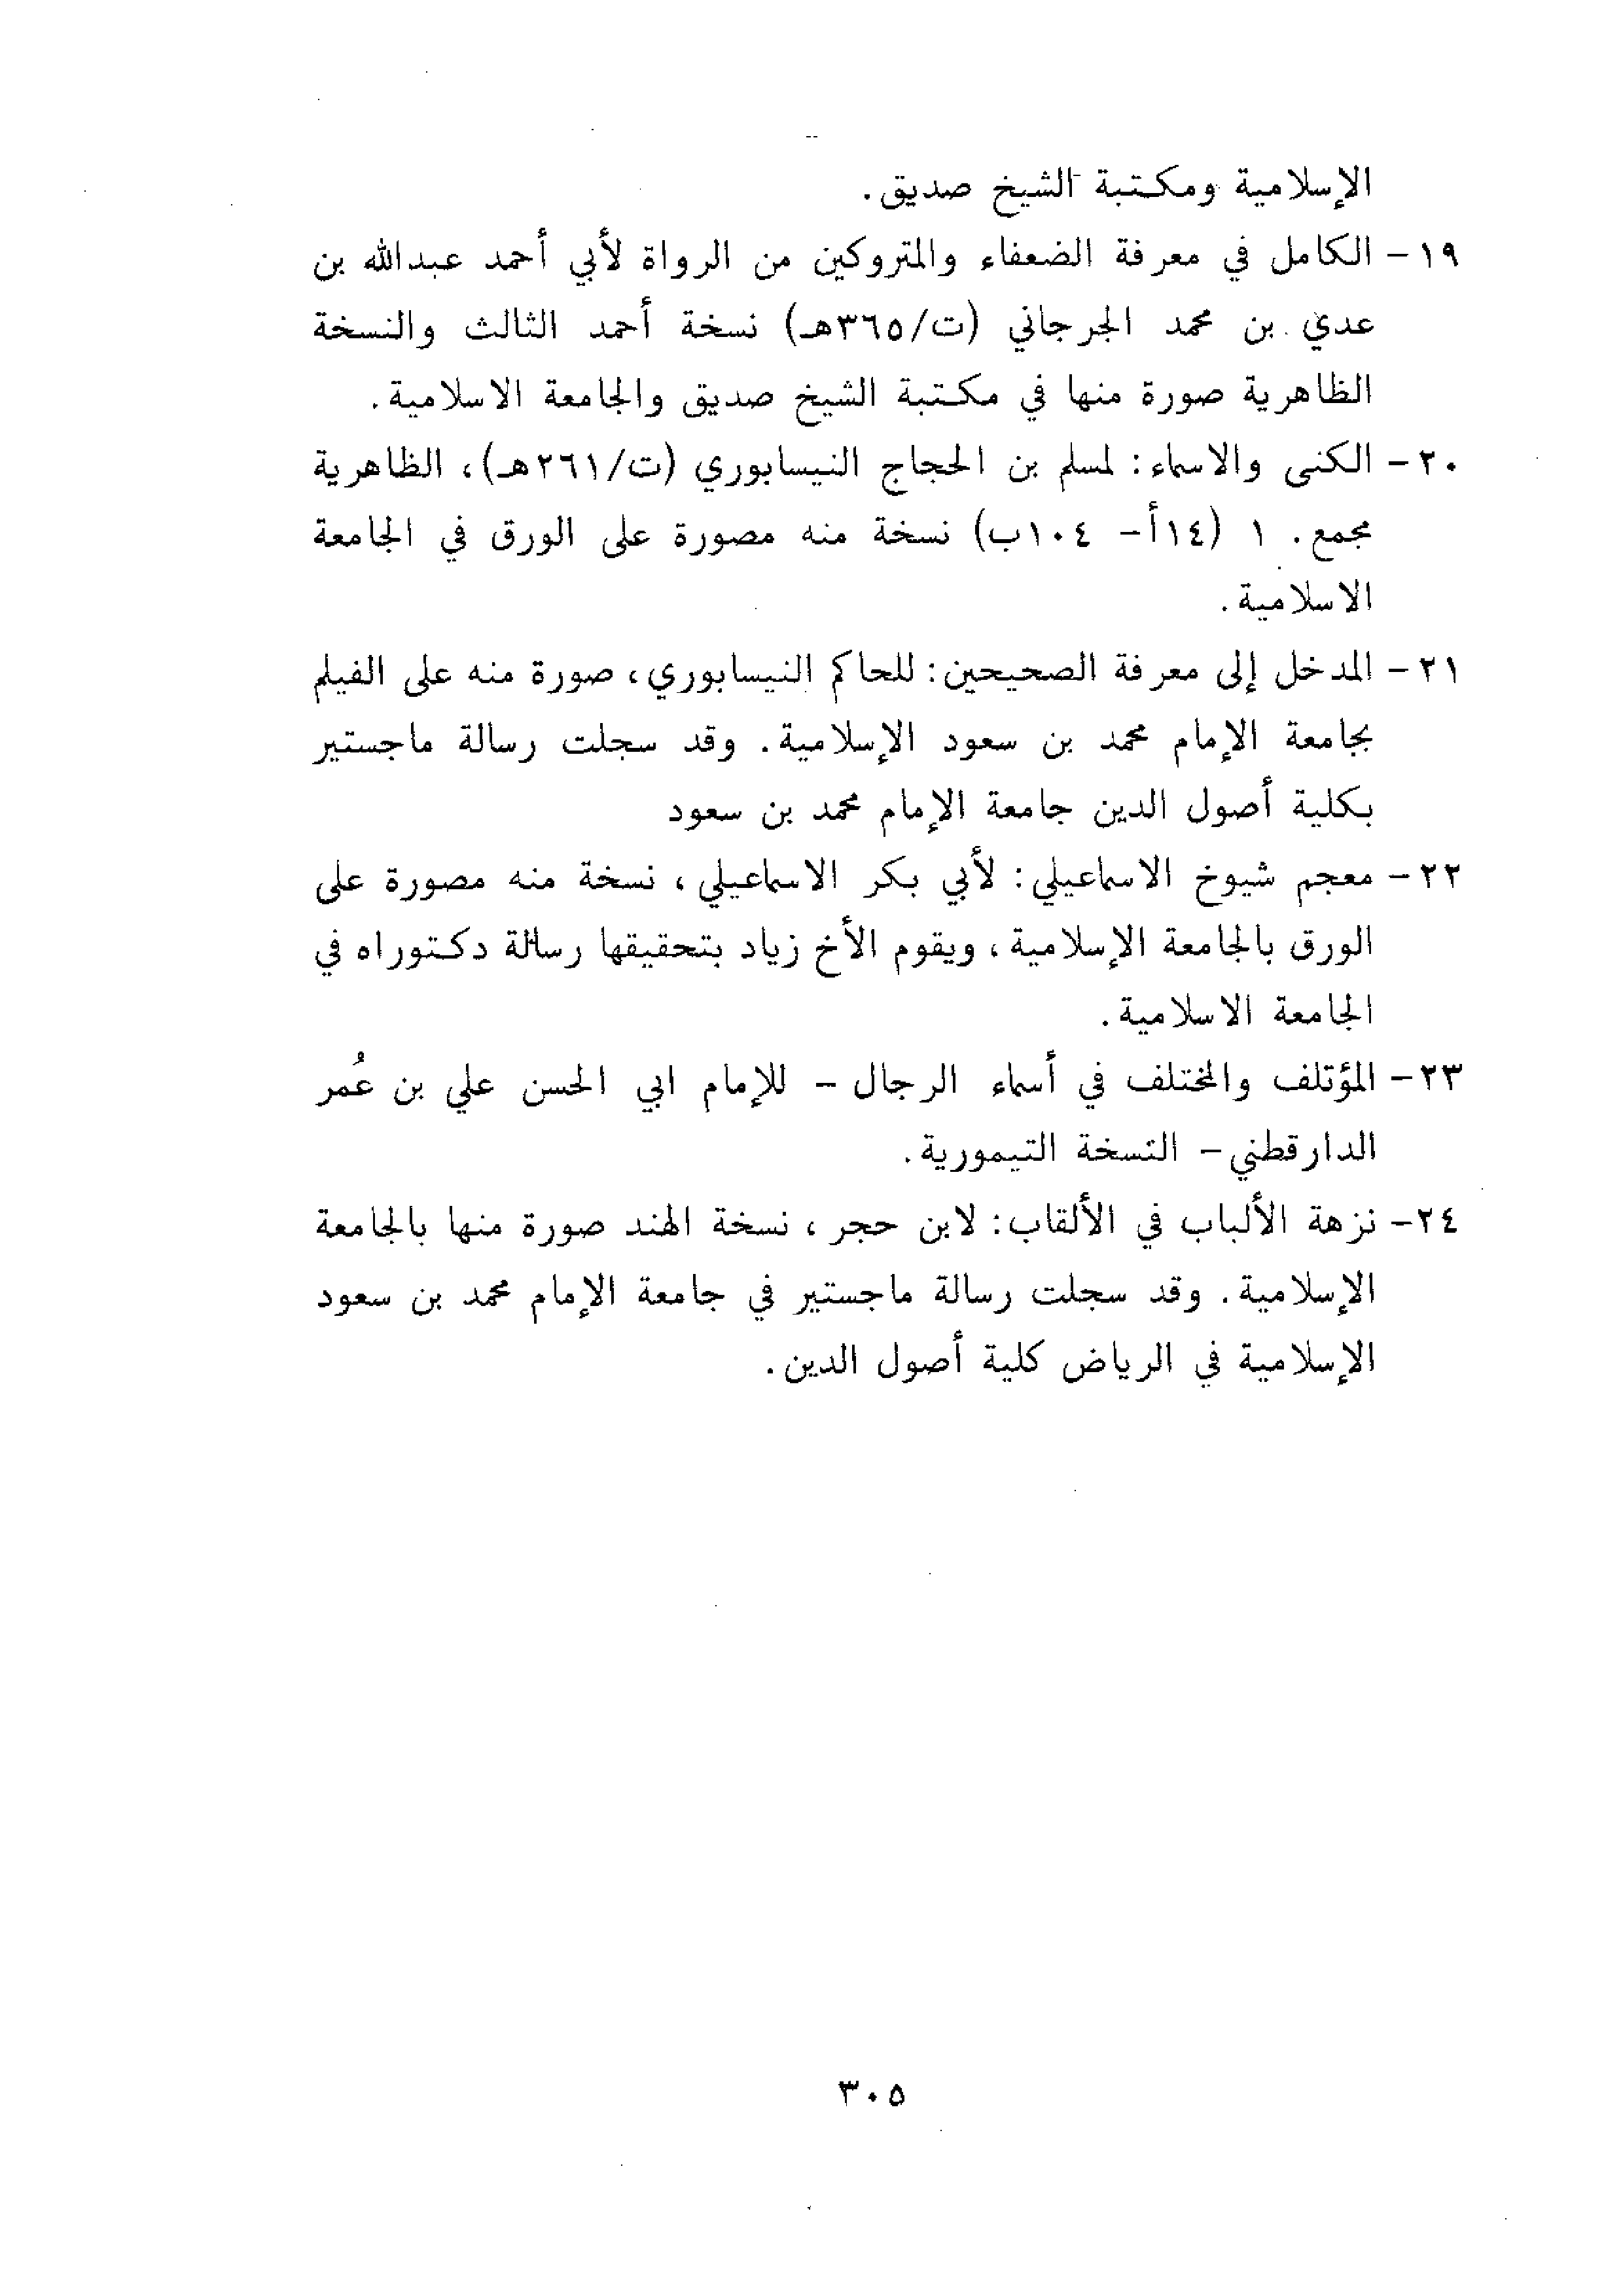 الإسلامية ومكتبة الشيخ صديق.
١٩- الكامل في معرفة الضعفاء والمتروكين من الرواة لأبي أحمد عبدالله بن
عدي بن محمد الجرجاني (ت/٣٦٥هـ) نسخة أحمد الثالث والنسخة
الظاهرية صورة منها في مكتبة الشيخ صديق والجامعة الاسلامية.
٢٠- الكنى والاسماء: لمسلم بن الحجاج النيسابوري (ت/٢٦١هـ)، الظاهرية
مجمع. ١ (١٤أ- ١٠٤ب) نسخة منه مصورة على الورق في الجامعة
الاسلامية.
٢١- المدخل إلى معرفة الصحيحين: للحاكم النيسابوري، صورة منه على الفيلم
بجامعة الإمام محمد بن سعود الإسلامية. وقد سجلت رسالة ماجستير
بكلية أصول الدين جامعة الإمام محمد بن سعود
٢٢- معجم شيوخ الاسماعيلي: لأبي بكر الاسماعيلي، نسخة منه مصورة على
الورق بالجامعة الإسلامية، ويقوم الأخ زياد بتحقيقها رسالة دكتوراه في
الجامعة الاسلامية.
٢٣- المؤتلف والمختلف في أسماء الرجال - للإمام ابي الحسن علي بن عُمر
الدارقطني- النسخة التيمورية.
٢٤- نزهة الألباب في الألقاب: لابن حجر، نسخة الهند صورة منها بالجامعة
الإسلامية. وقد سجلت رسالة ماجستير في جامعة الإمام محمد بن سعود
الإسلامية في الرياض كلية أصول الدين.
٣٠٥